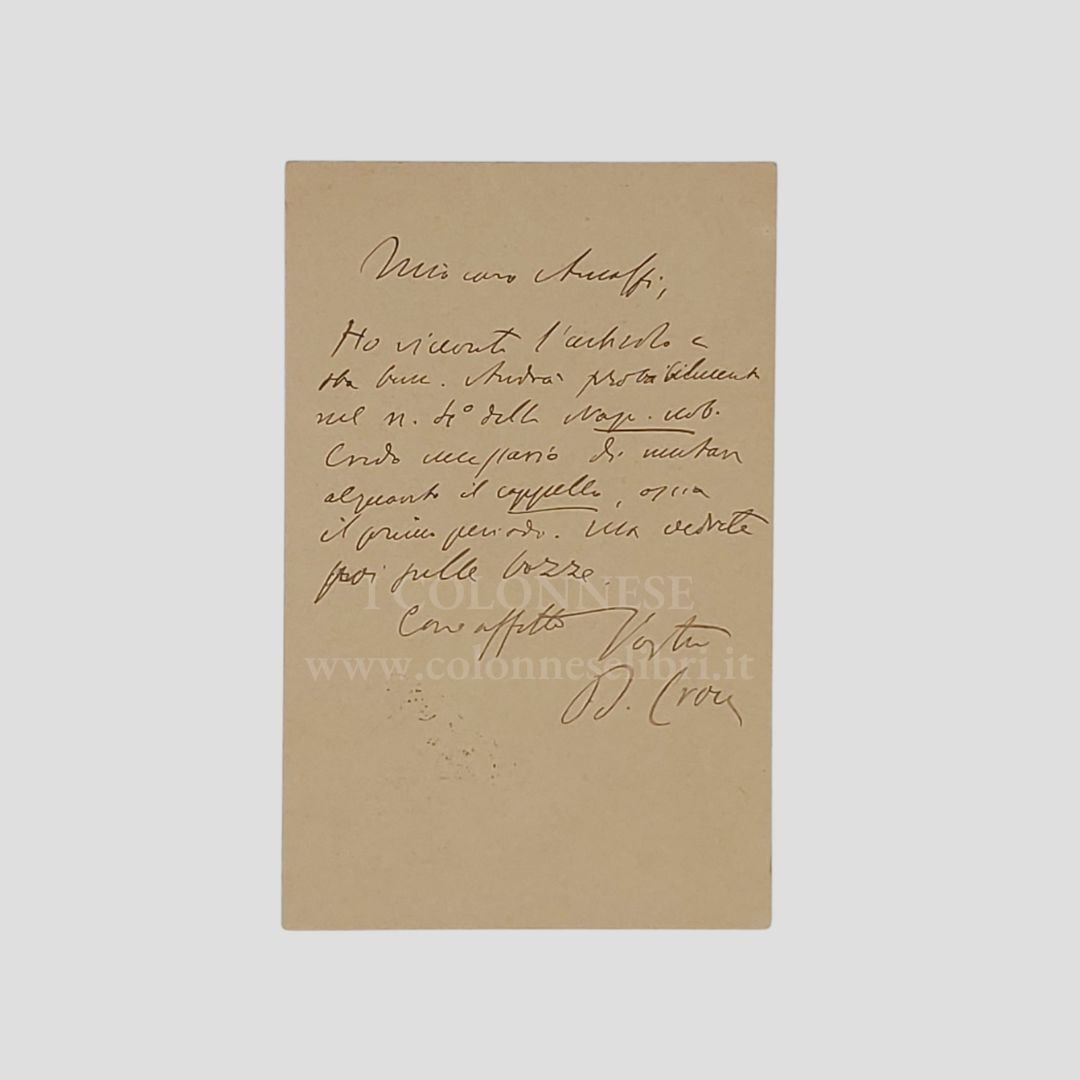 Mio caro Amalfi,
Ho ricevuto l'articolo e
sta bene. Andrà probabilmente
nel n. di della Nap. nob.
Credo necessario di mutare
alquanto il cappello, ossia
il primo periodo. Ma vedrete
poi sulle bozze.
Con affetto Vostro
B. Croce
I COLONNESE
www.colonneselibri.it